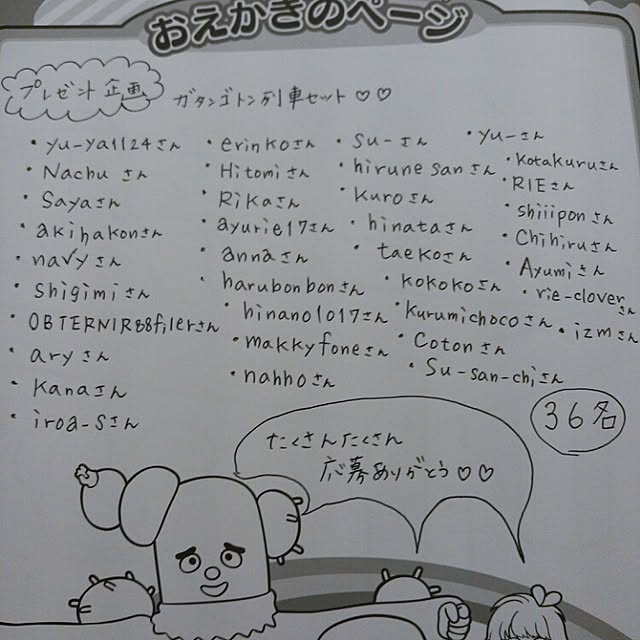 おえかきのページ
プレゼント企画
ガタンゴトン列車セット♡♡
・yu-ya1124さん
・Nachuさん
・Sayaさん
・akihakonさん
・navyさん
・shigimiさん
・OBTERNIR88filerさん
・aryさん
・Kanaさん
・iroa-sさん
・erinkoさん
・Hitomiさん
・Rikaさん
・ayurie17さん
・annaさん
・harubonbonさん
・hinano1017さん
・makkyfoneさん
・nahhoさん
・su-さん
・hirune sanさん
・Kuroさん
・hinataさん
・taekoさん
・kokokoさん
・kurumichocoさん
・Cotonさん
・Su-san-chiさん
・yu-さん
・kotakuruさん
・RIEさん
・shiiiponさん
・Chihiruさん
・Ayumiさん
・rie-cloverさん
・izmさん
36名
たくさんたくさん
応募ありがとう♡♡